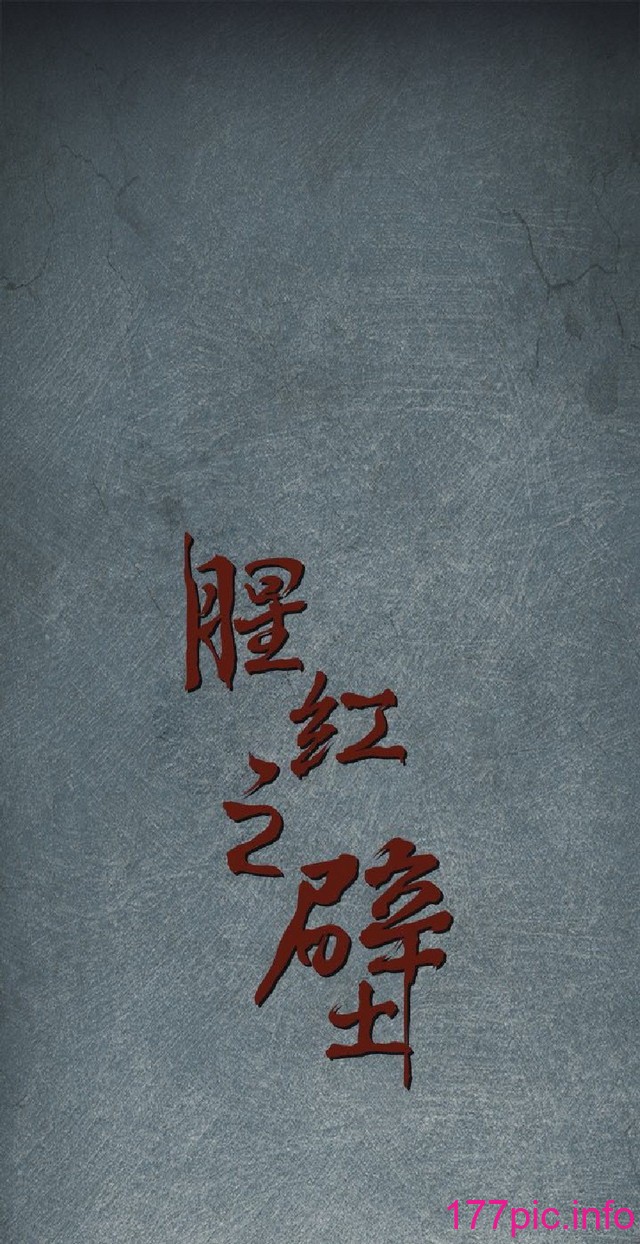 腥红之壁
177pic.info